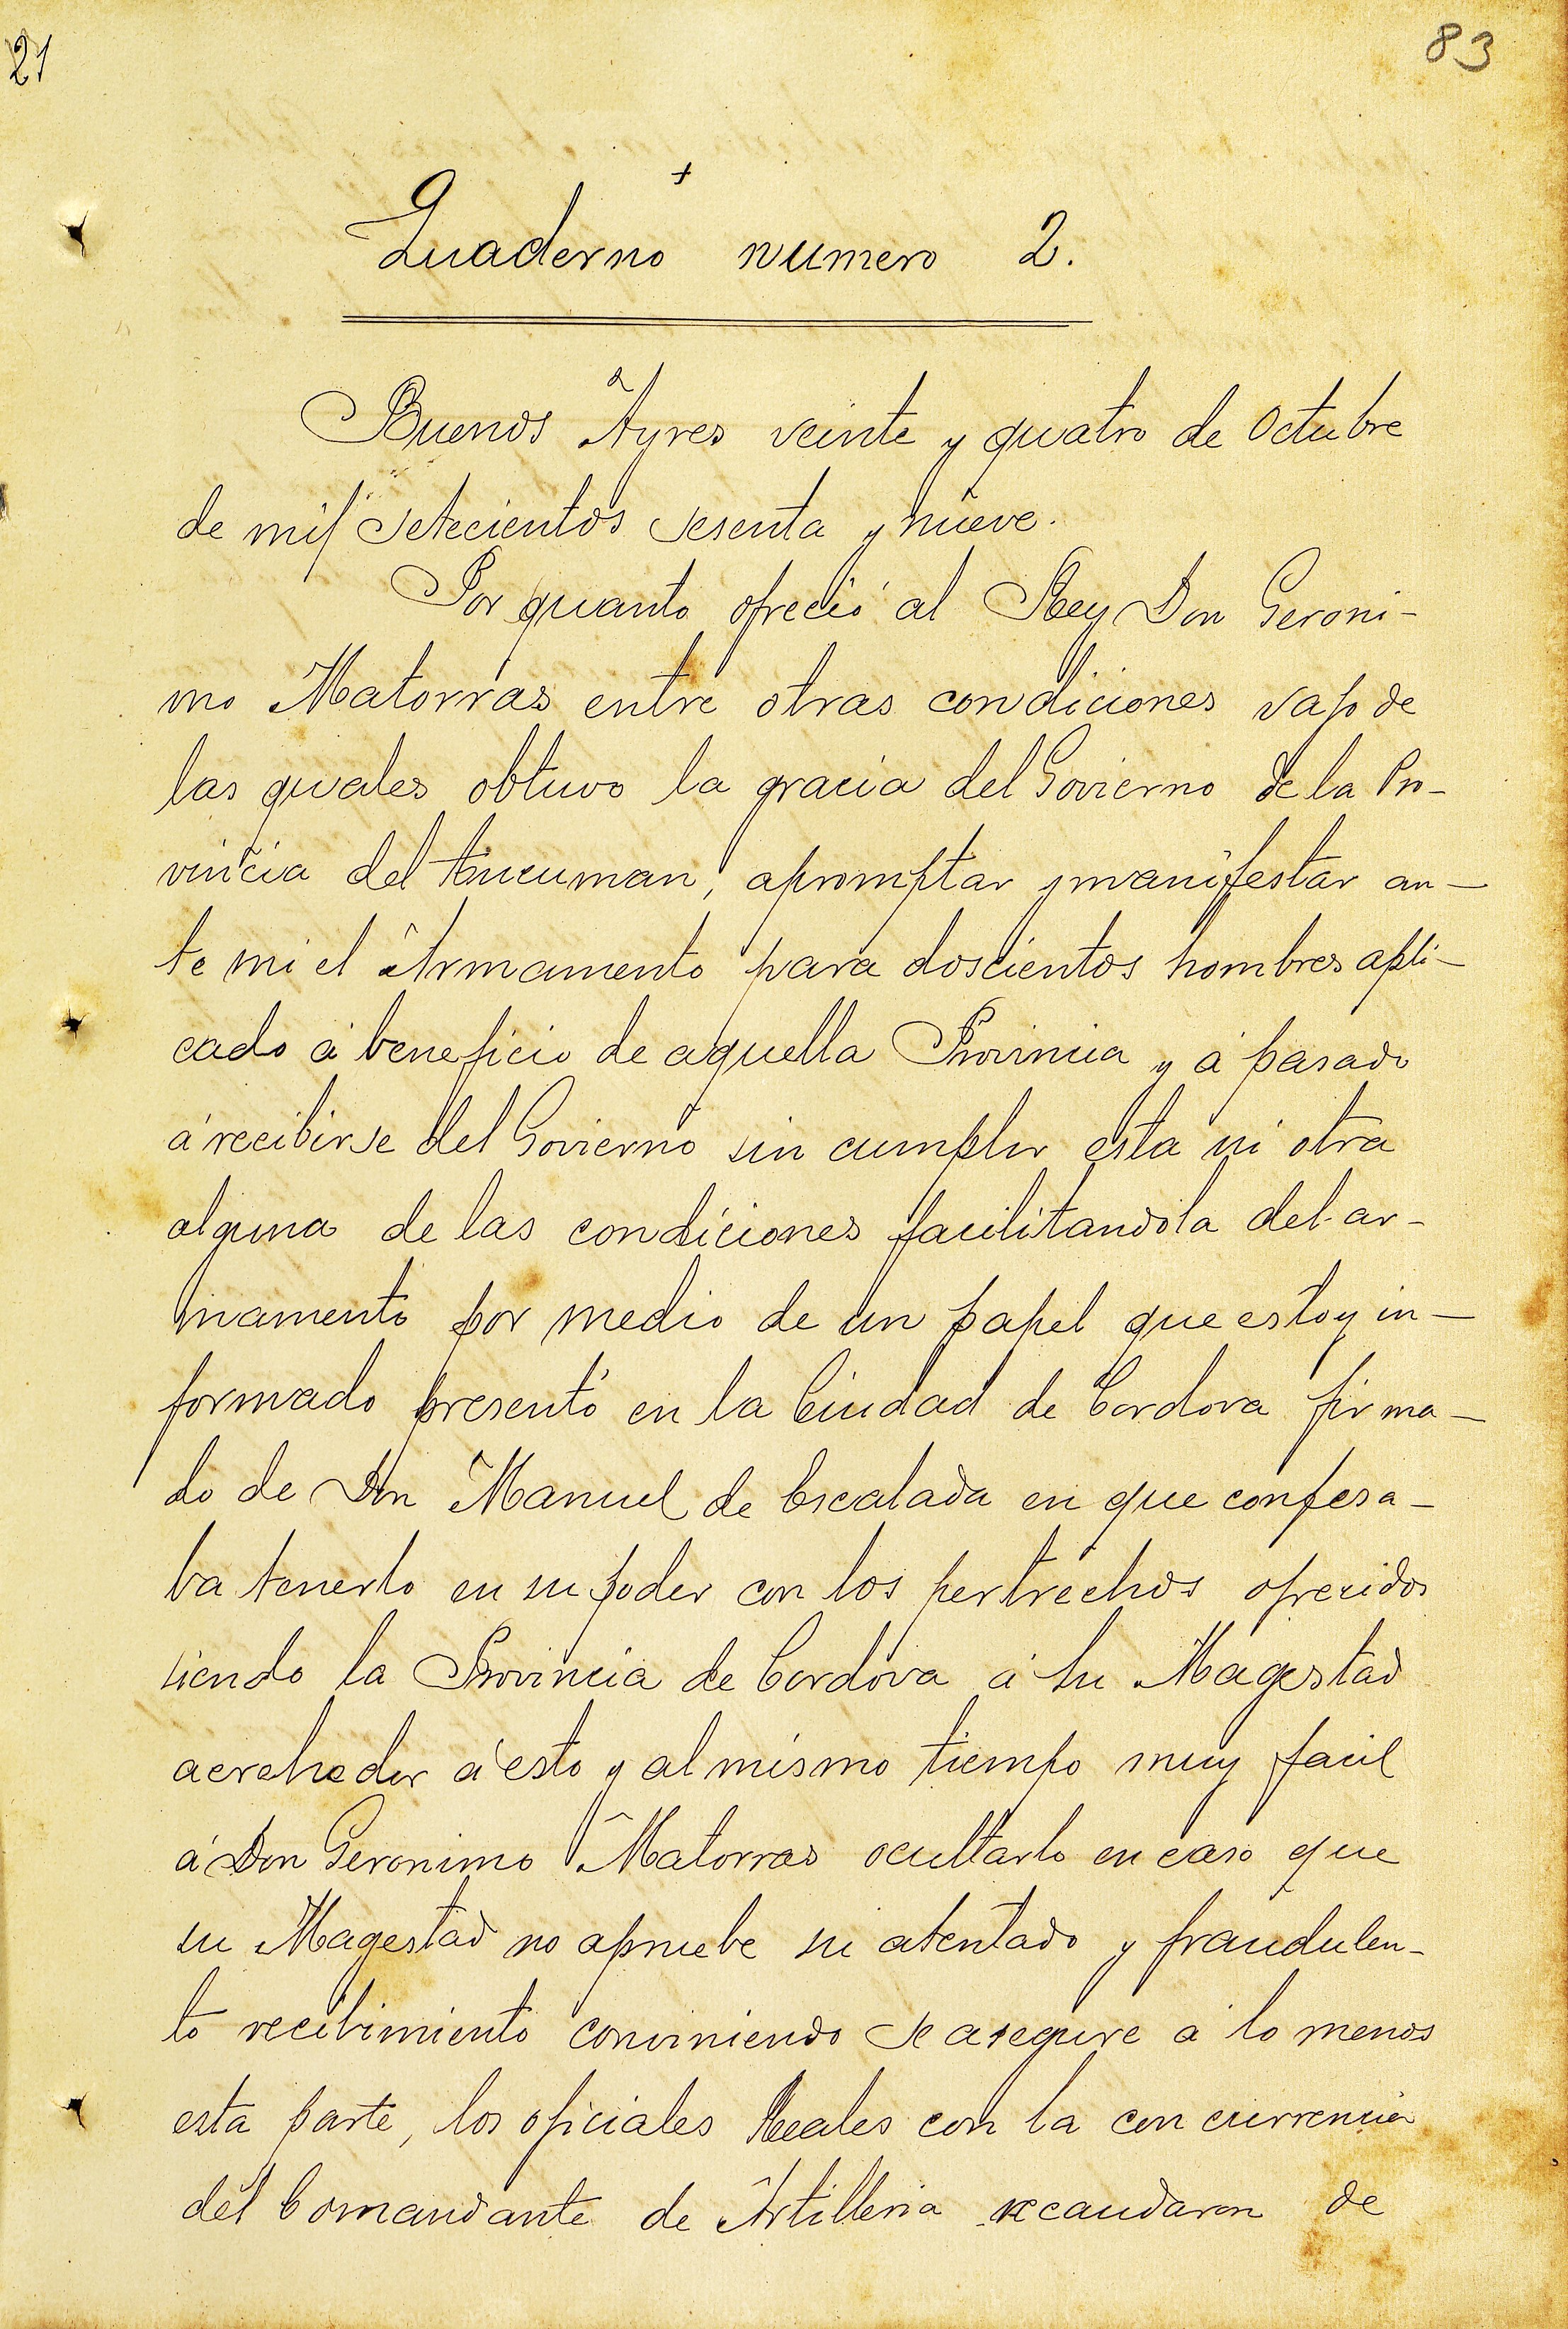 21
83
+
Quaderno numero 2.
Buenos Ayres veinte y quatro de Octubre
de mil setecientos sesenta y nueve.
Por quanto ofreció al Rey Don Geroni-
mo Matorras entre otras condiciones vajo de
las quales obtuvo la gracia del Govierno de la Pro-
vincia del tucuman, apromptar y manifestar an-
te mi el Armamento para doscientos hombres apli-
cado á beneficio de aquella Provincia y á pasado
á recibirse del Govierno sin cumplir esta ni otra
alguna de las condiciones facilitandola del ar-
mamento por medio de un papel que estoy in-
formado presentó en la Ciudad de Cordova firma-
do de Don Manuel de Escalada en que confesa-
ba tenerlo en su poder con los pertrechos ofrecidos
siendo la Provincia de Cordova á su Magestad
acrehedor á esto y al mismo tiempo muy facil
á Don Geronimo Matorras ocultarlo en caso que
su Magestad no apruebe su atentado y fraudulen-
to recibimiento conviniendo se asegure á lo menos
esta parte, los oficiales Reales con la concurrencia
del Comandante de Artilleria recaudaron de